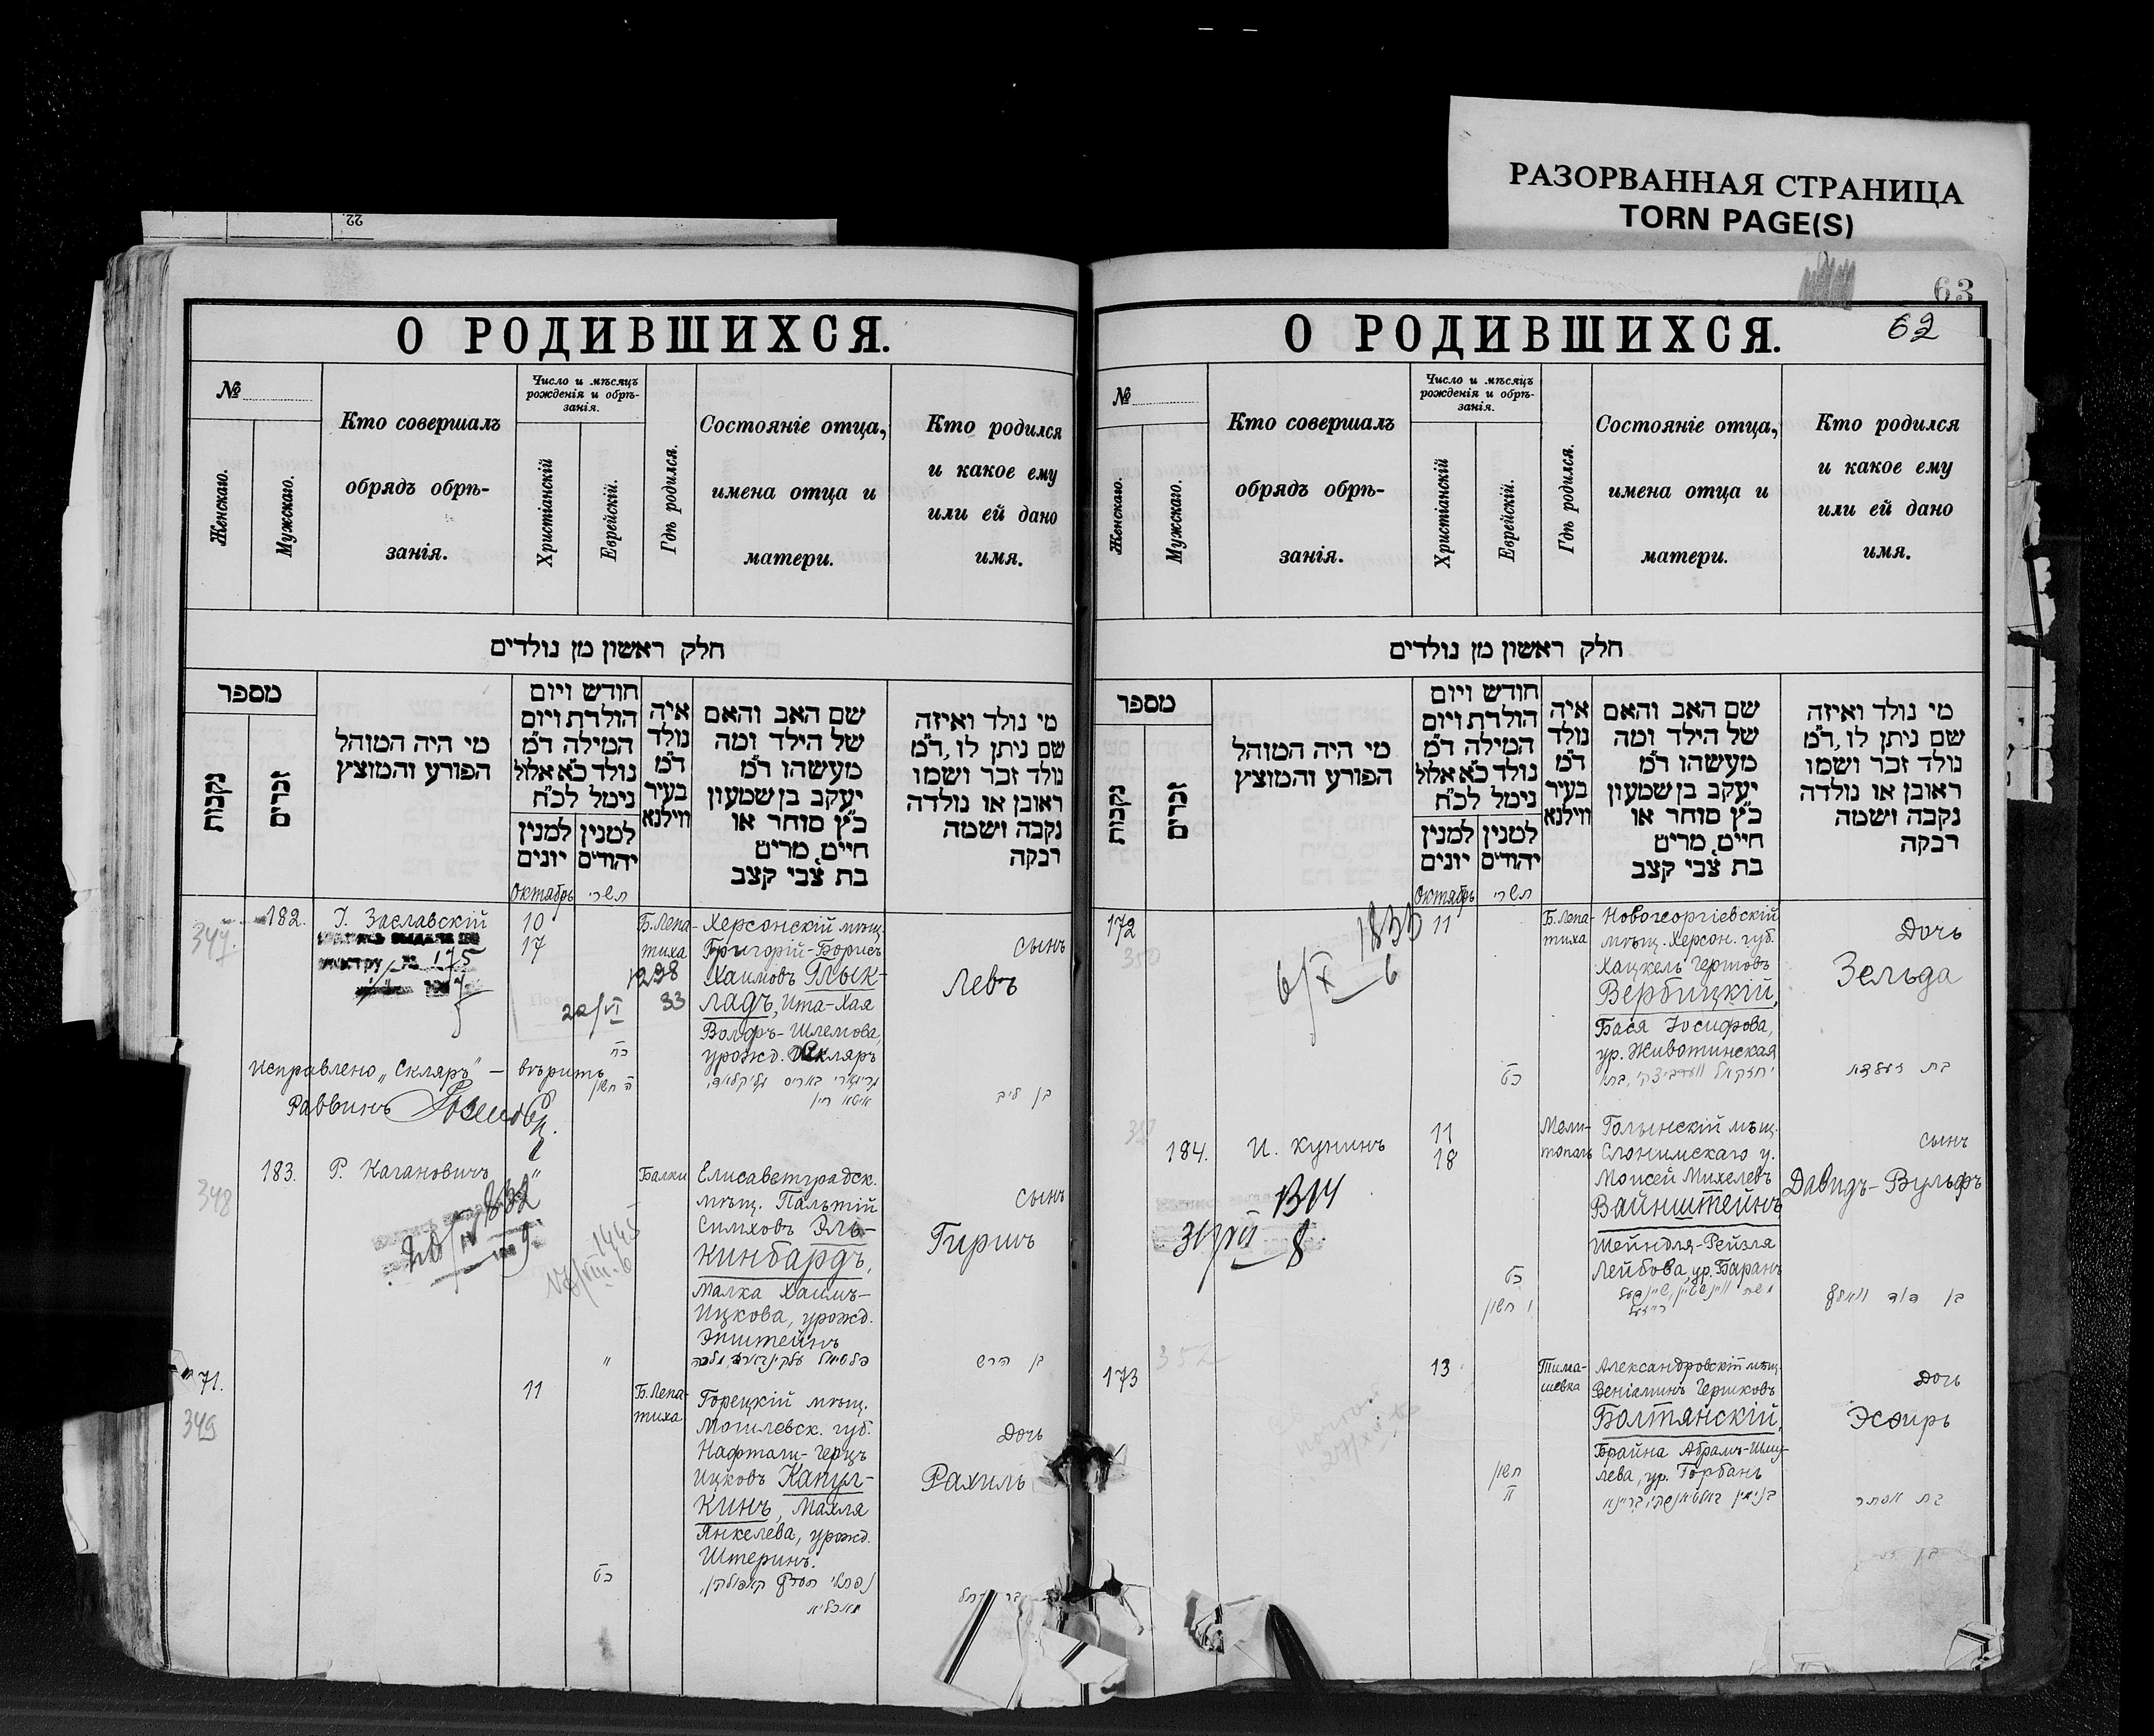 РАЗОРВАННАЯ СТРАНИЦА
TORN PAGE(S)
22
О РОДИВШИХСЯ.
№
Женскаго.
Мужскаго.
Кто совершалъ
обрядъ обрѣ-
занія.
Число и мѣсяцъ
рожденія и обрѣ-
занія.
Христіанскій
Еврейскій.
Гдѣ родился.
Состояніе отца,
имена отца и
матери.
Кто родился
и какое ему
или ей дано
имя.
חלק ראשון מן נולדים
מספר
נקבות
זכרים
מי היה המוהל
הפורע והמוצץ
חודש ויום
הולדת ויום
המילה ד״מ
נולד כ״א אלול
נימל לכ״ח
למנין
יונים
למנין
יהודים
איה
נולד
ד״מ
בעיר
ווילנא
שם האב והאם
של הילד ומה
מעשהו ד״מ
יעקב בן שמעון
כ״ץ סוחר או
חיים, מרים
בת צבי קצב
מי נולד ואיזה
שם ניתן לו, ד״מ
נולד זכר ושמו
ראובן או נולדה
נקבה ושמה
רבקה
Октябрь
תשרי
347.
182.
І. Заславскій
175
10
17
Б. Лепа-
тиха
1298
33
22/VI
Херсонскій мѣщ.
Григорій-Борисъ
Хаимовъ Глык-
ладъ, Ита-Хая
Волфъ-Шлемова,
урожд. Скляръ
сынъ
Левъ
כח
ה חשון
בן ליב
Исправлено „Скляръ" – вѣрить
Раввинъ
348
183.
Р. Кагановичъ
"
832
20/IV 9
1445
17/VIII 6
Балки
Елисаветградск.
мѣщ. Пальтій
Симховъ Эль-
кинбардъ,
Малка Хаимъ-
Ицкова, урожд.
Эпштейнъ
сынъ
Гиршъ
"
בן הרש
171.
349
11
Б. Лепа-
тиха
Горецкій мѣщ.
Могилевск. губ.
Нафтали-Герцъ
Ицковъ Капул-
кинъ, Махля
Янкелева, урожд.
Штеринъ.
Дочь
Рахиль
כט
63
О РОДИВШИХСЯ.
62
№
Женскаго.
Мужскаго.
Кто совершалъ
обрядъ обрѣ-
занія.
Число и мѣсяцъ
рожденія и обрѣ-
занія.
Христіанскій
Еврейскій.
Гдѣ родился.
Состояніе отца,
имена отца и
матери.
Кто родился
и какое ему
или ей дано
имя.
חלק ראשון מן נולדים
מספר
נקבות
זכרים
מי היה המוהל
הפורע והמוצץ
חודש ויום
הולדת ויום
המילה ד״מ
נולד כ״א אלול
נימל לכ״ח
למנין
יונים
למנין
יהודים
איה
נולד
ד״מ
בעיר
ווילנא
שם האב והאם
של הילד ומה
מעשהו ד״מ
יעקב בן שמעון
כ״ץ סוחר או
חיים, מרים
בת צבי קצב
מי נולד ואיזה
שם ניתן לו, ד״מ
נולד זכר ושמו
ראובן או נולדה
נקבה ושמה
רבקה
Октябрь
תשרי
172
350
1833
6/X 6
11
Б. Лепа-
тиха
Новогеоргіевскій
мѣщ. Херсон. губ.
Хацкель Гершовъ
Вербицкій,
Бася Іосифова,
ур. Животинская
Дочь
Зельда
כט
184.
И. Кунинъ
1314
31/VII 8
11
18
Мели-
тополь
Голынскій мѣщ.
Слонимскаго у.
Моисей Михелевъ
Вайнштейнъ
Шейндля-Рейзля
Лейбова, ур. Баранъ
сынъ
Давидъ-Вульфъ
כט
ו חשון
בן דוד וואלף
173
352
13
Тима-
шевка
Александровскій мѣщ.
Веніаминъ Гершковъ
Болтянскій,
Брайна Абрамъ-Шму-
лева, ур. Горбань
Дочь
Эсѳирь
חשון
בת אסתר